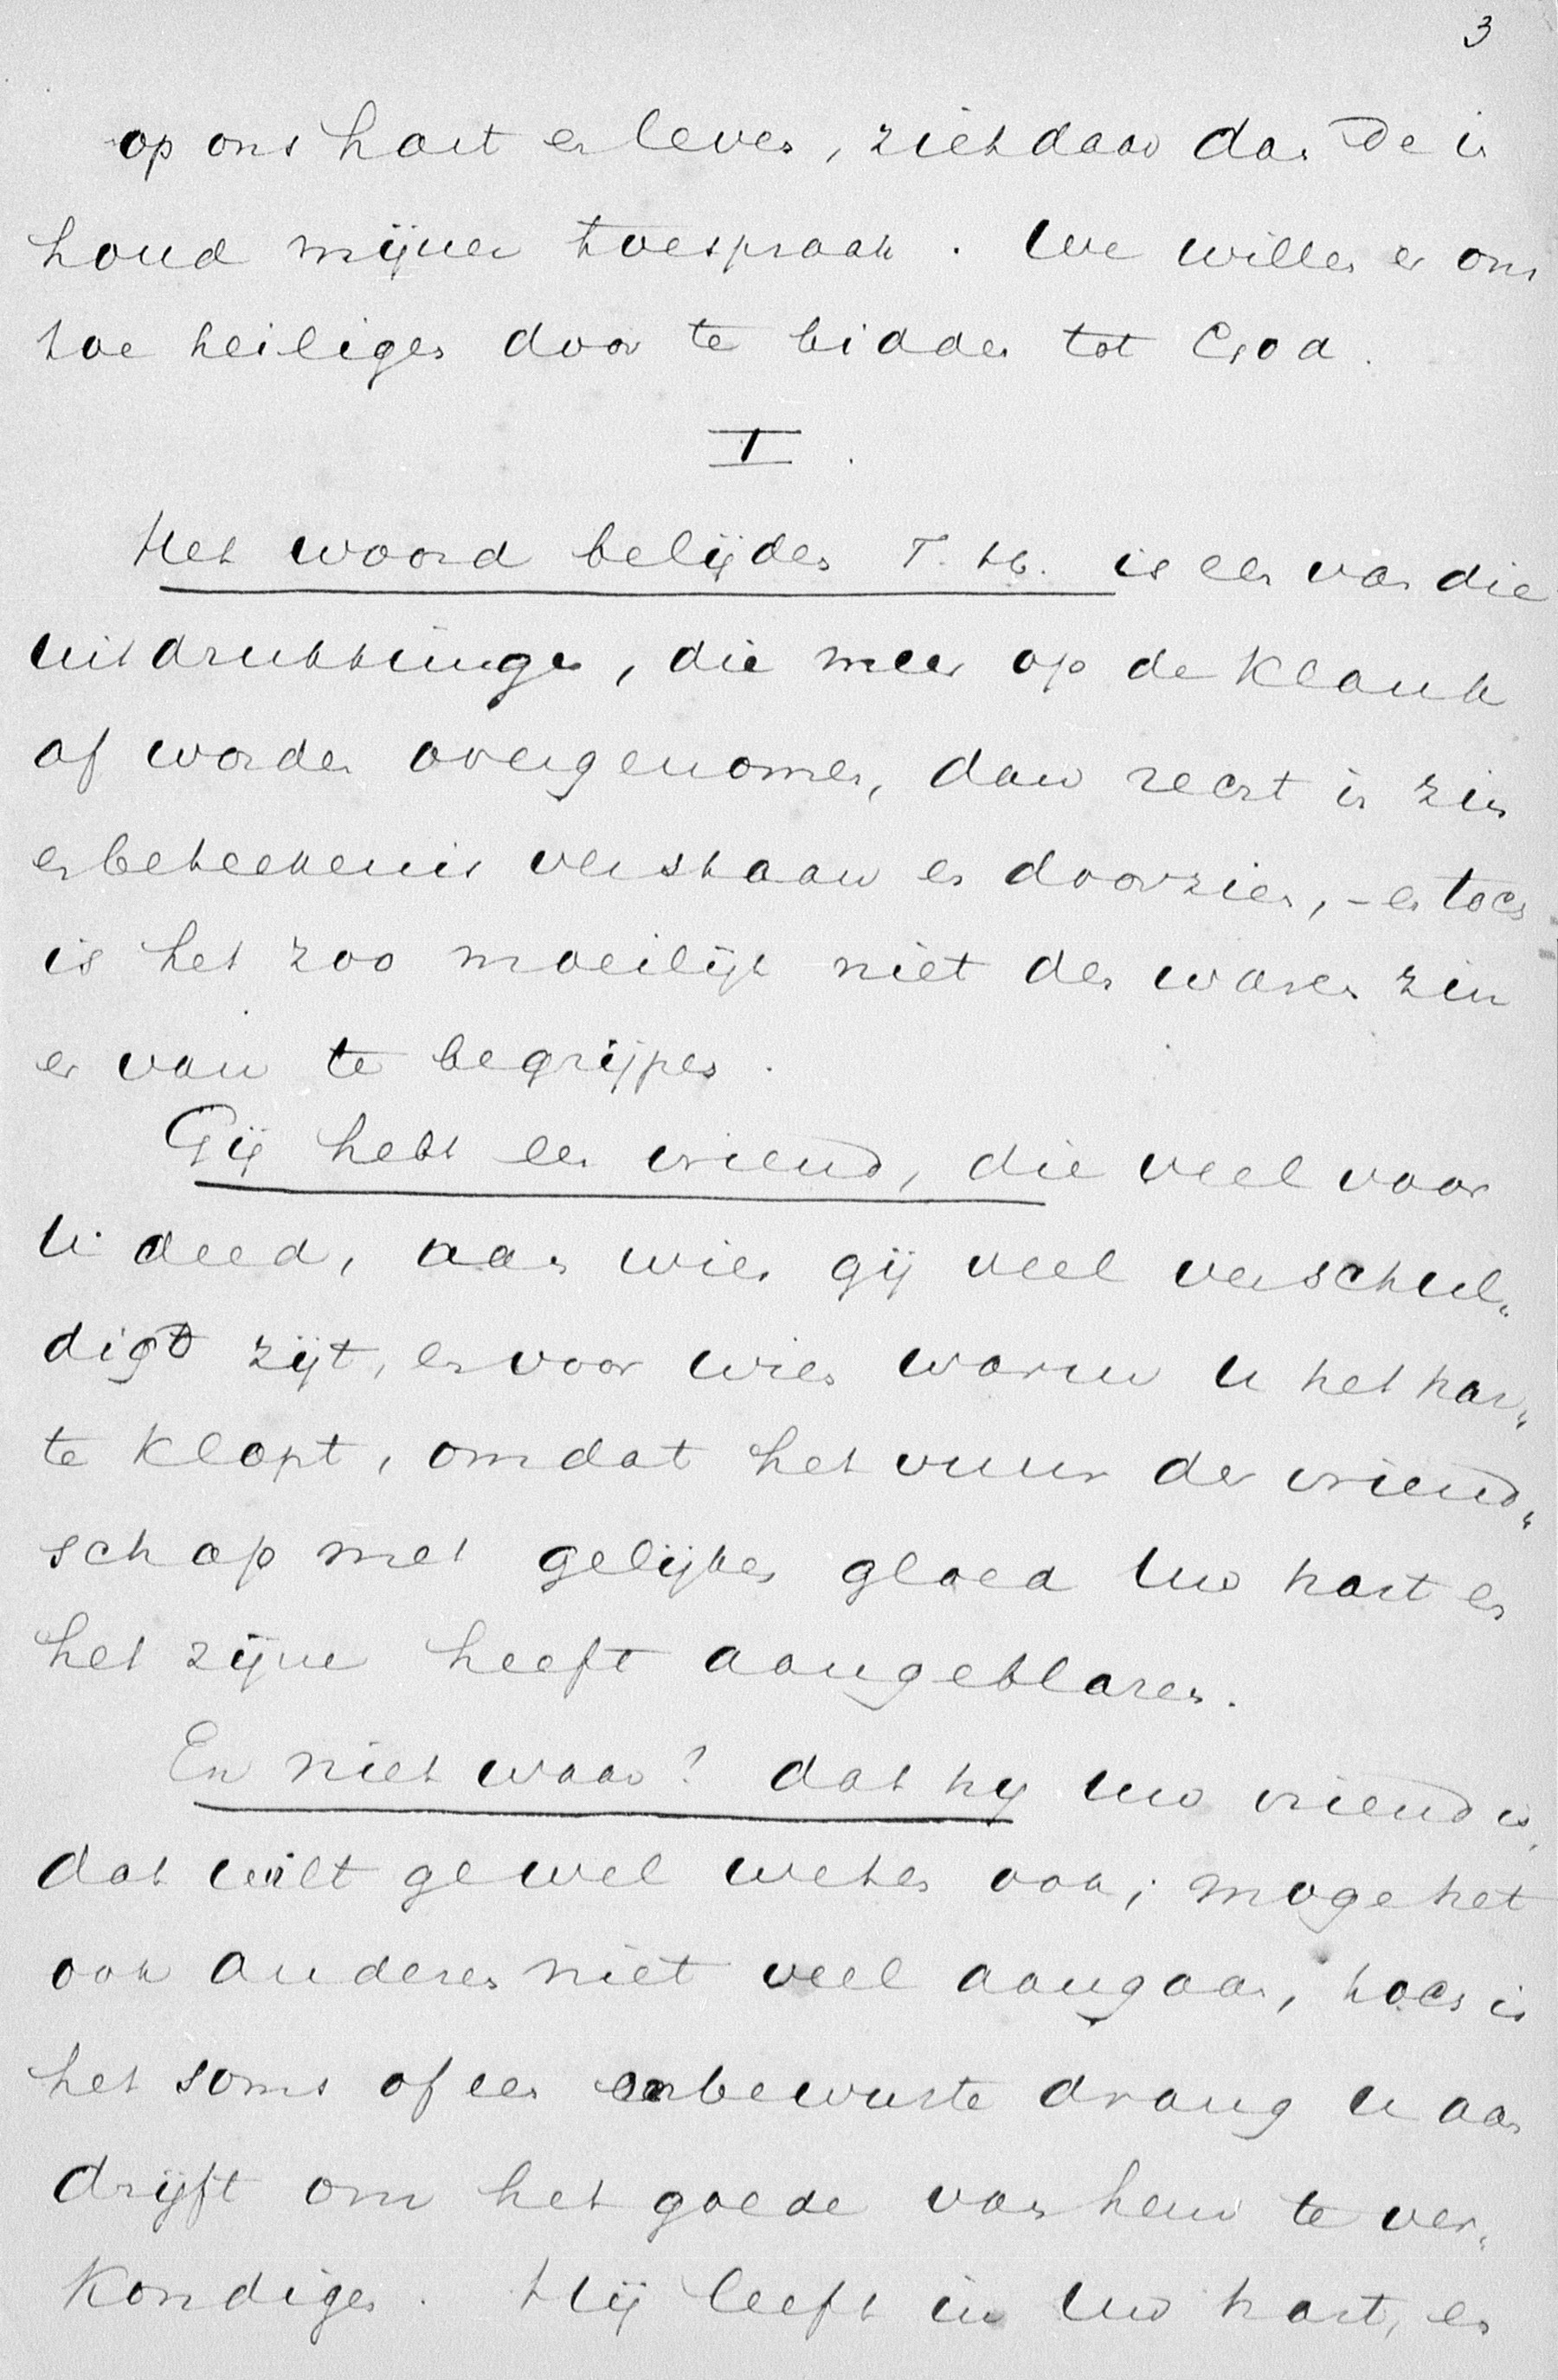 3
op ons hart en leven, ziet daar dan de in
houd mijner toespraak. We willen er ons
toe heiligen door te bidden tot God.
I.
Het woord belijden T. H. is een van die
uitdrukkingen, die meer op de klank
af worden overgenomen, dan recht in zin
en beteekenis verstaan en doorzien, - en toch
is het zoo moeilijk niet den waren zin
er van te begrijpen.
Gij hebt een vriend, die veel voor
U deed, aan wien gij veel verschul„
digd zijt, en voor wien warm U het har„
te klopt, omdat het vuur der vriend„
schap met gelijken gloed Uw hart en
het zijne heeft aangeblazen.
En niet waar? dat hij Uw vriend is,
dat wilt ge wel weten ook; moge het
ook anderen niet veel aangaan, toch is
het soms of een onbewuste drang U aan
drijft om het goede van hem te ver„
kondigen. Hij leeft in Uw hart, en